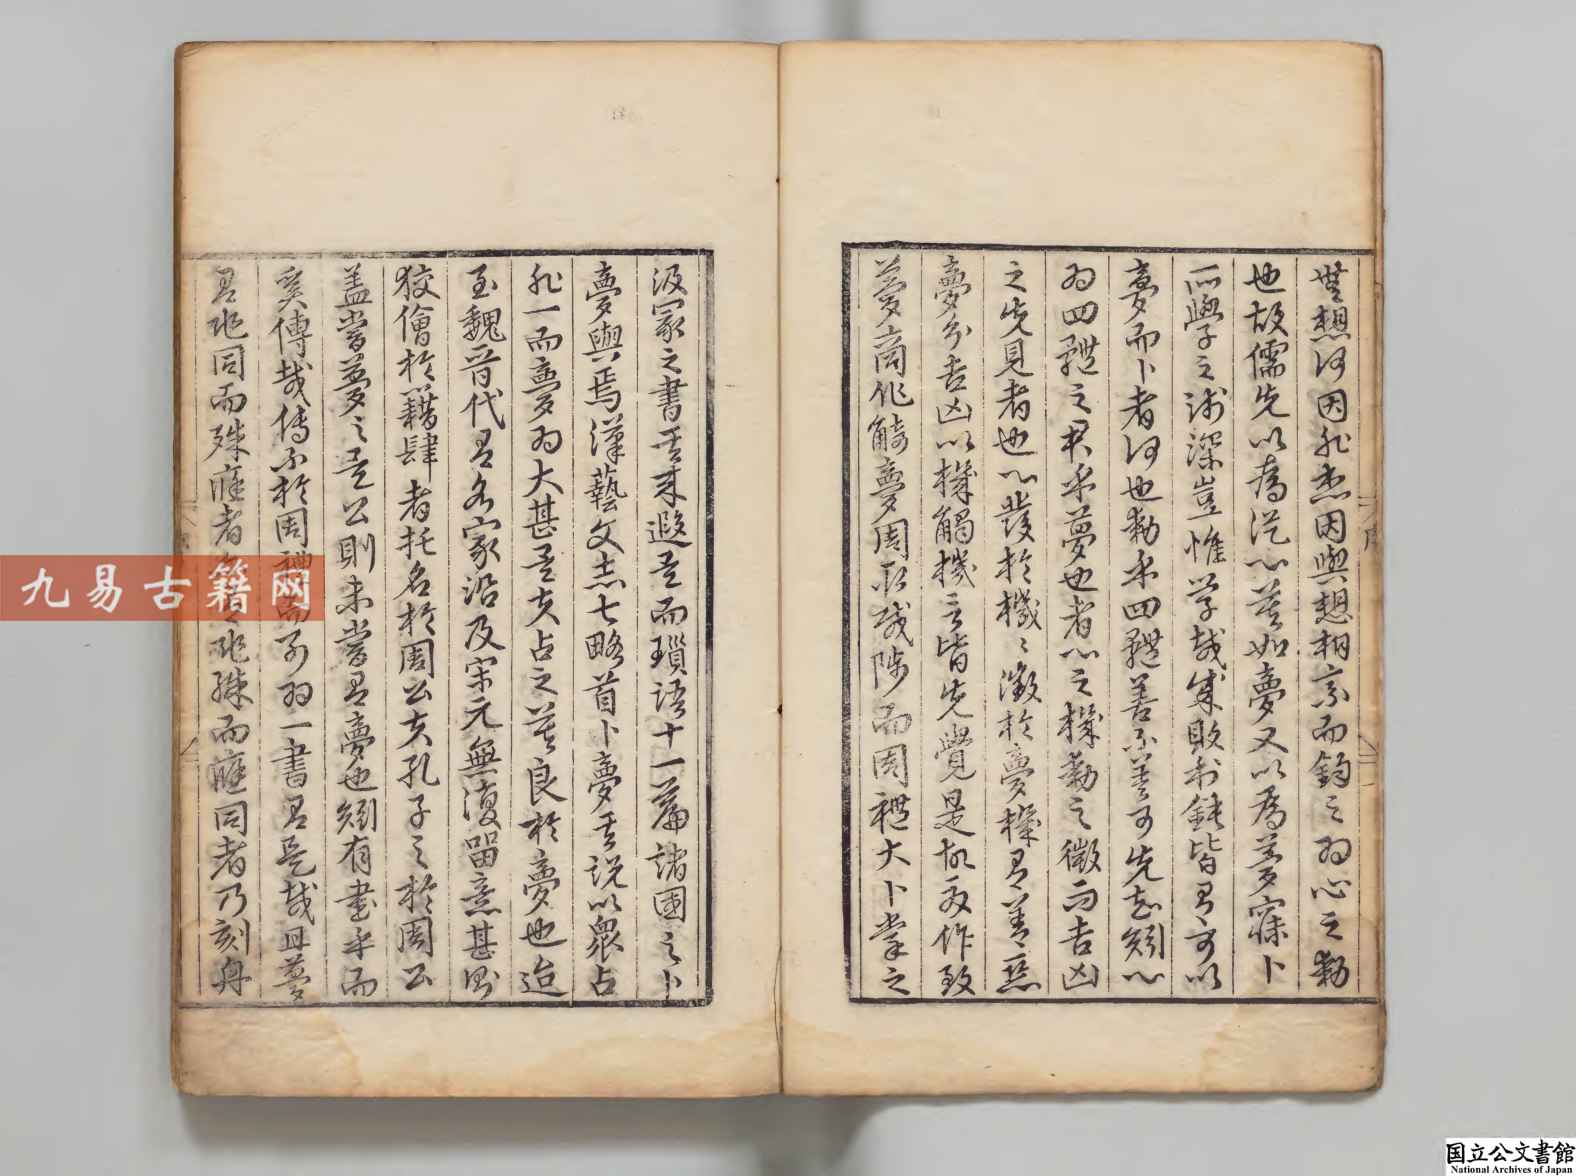 無想何因非想因與想相宗而鈞之為心之動
也故儒先以為從心善如夢又以為夢寐卜
所學之淺深豈惟學哉成敗利鈍皆有可以
夢而卜者何也動乎四體善不善可先知則心
為四體之君乎夢也者心之機動之微而吉凶
之先見者也心發於機機徵於夢機有善惡
夢分吉凶以機觸機言皆先覺是故夏作致
夢商作觭夢周取咸陟而周禮大卜掌之
汲冢之書其來遐矣而瑣語十一篇諸國之卜
夢與焉漢藝文志七略首卜夢其說以衆占
非一而夢為大甚矣夫占之莫良於夢也迨
至魏晉代有名家沿及宋元無復留意甚則
狡儈於籍肆者托名於周公夫孔子之於周公
蓋嘗夢之矣公則未嘗有夢也烱有書乎而
奚傳哉傳不於周禮而別為一書有是哉且夢
有兆同而殊應者有兆殊而應同者乃刻舟
九易古籍网
国立公文書館
National Archives of Japan